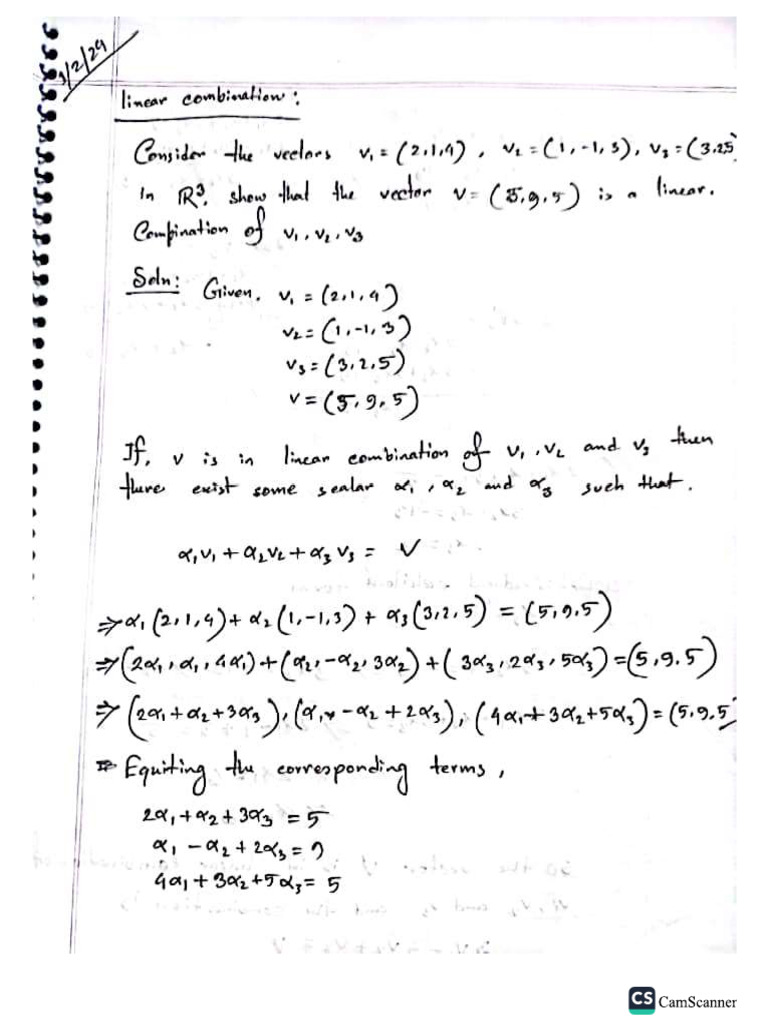 1/2/24
linear combination:
Consider the vectors v₁ = (2,1,4), v₂ = (1,-1,3), v₃ = (3,2,5)
in ℝ³. show that the vector v = (5,9,5) is a linear.
Combination of v₁, v₂, v₃
Soln: Given. v₁ = (2,1,4)
v₂ = (1,-1,3)
v₃ = (3,2,5)
v = (5,9,5)
If, v is in linear combination of v₁, v₂ and v₃ then
there exist some scalar α₁, α₂ and α₃ such that.
α₁v₁ + α₂v₂ + α₃v₃ = V
⇒ α₁(2,1,4) + α₂(1,-1,3) + α₃(3,2,5) = (5,9,5)
⇒ (2α₁, α₁, 4α₁) + (α₂, -α₂, 3α₂) + (3α₃, 2α₃, 5α₃) = (5,9,5)
⇒ (2α₁ + α₂ + 3α₃), (α₁ - α₂ + 2α₃), (4α₁ + 3α₂ + 5α₃) = (5,9,5)
⇒ Equiting the corresponding terms,
2α₁ + α₂ + 3α₃ = 5
α₁ - α₂ + 2α₃ = 9
4α₁ + 3α₂ + 5α₃ = 5
CS CamScanner